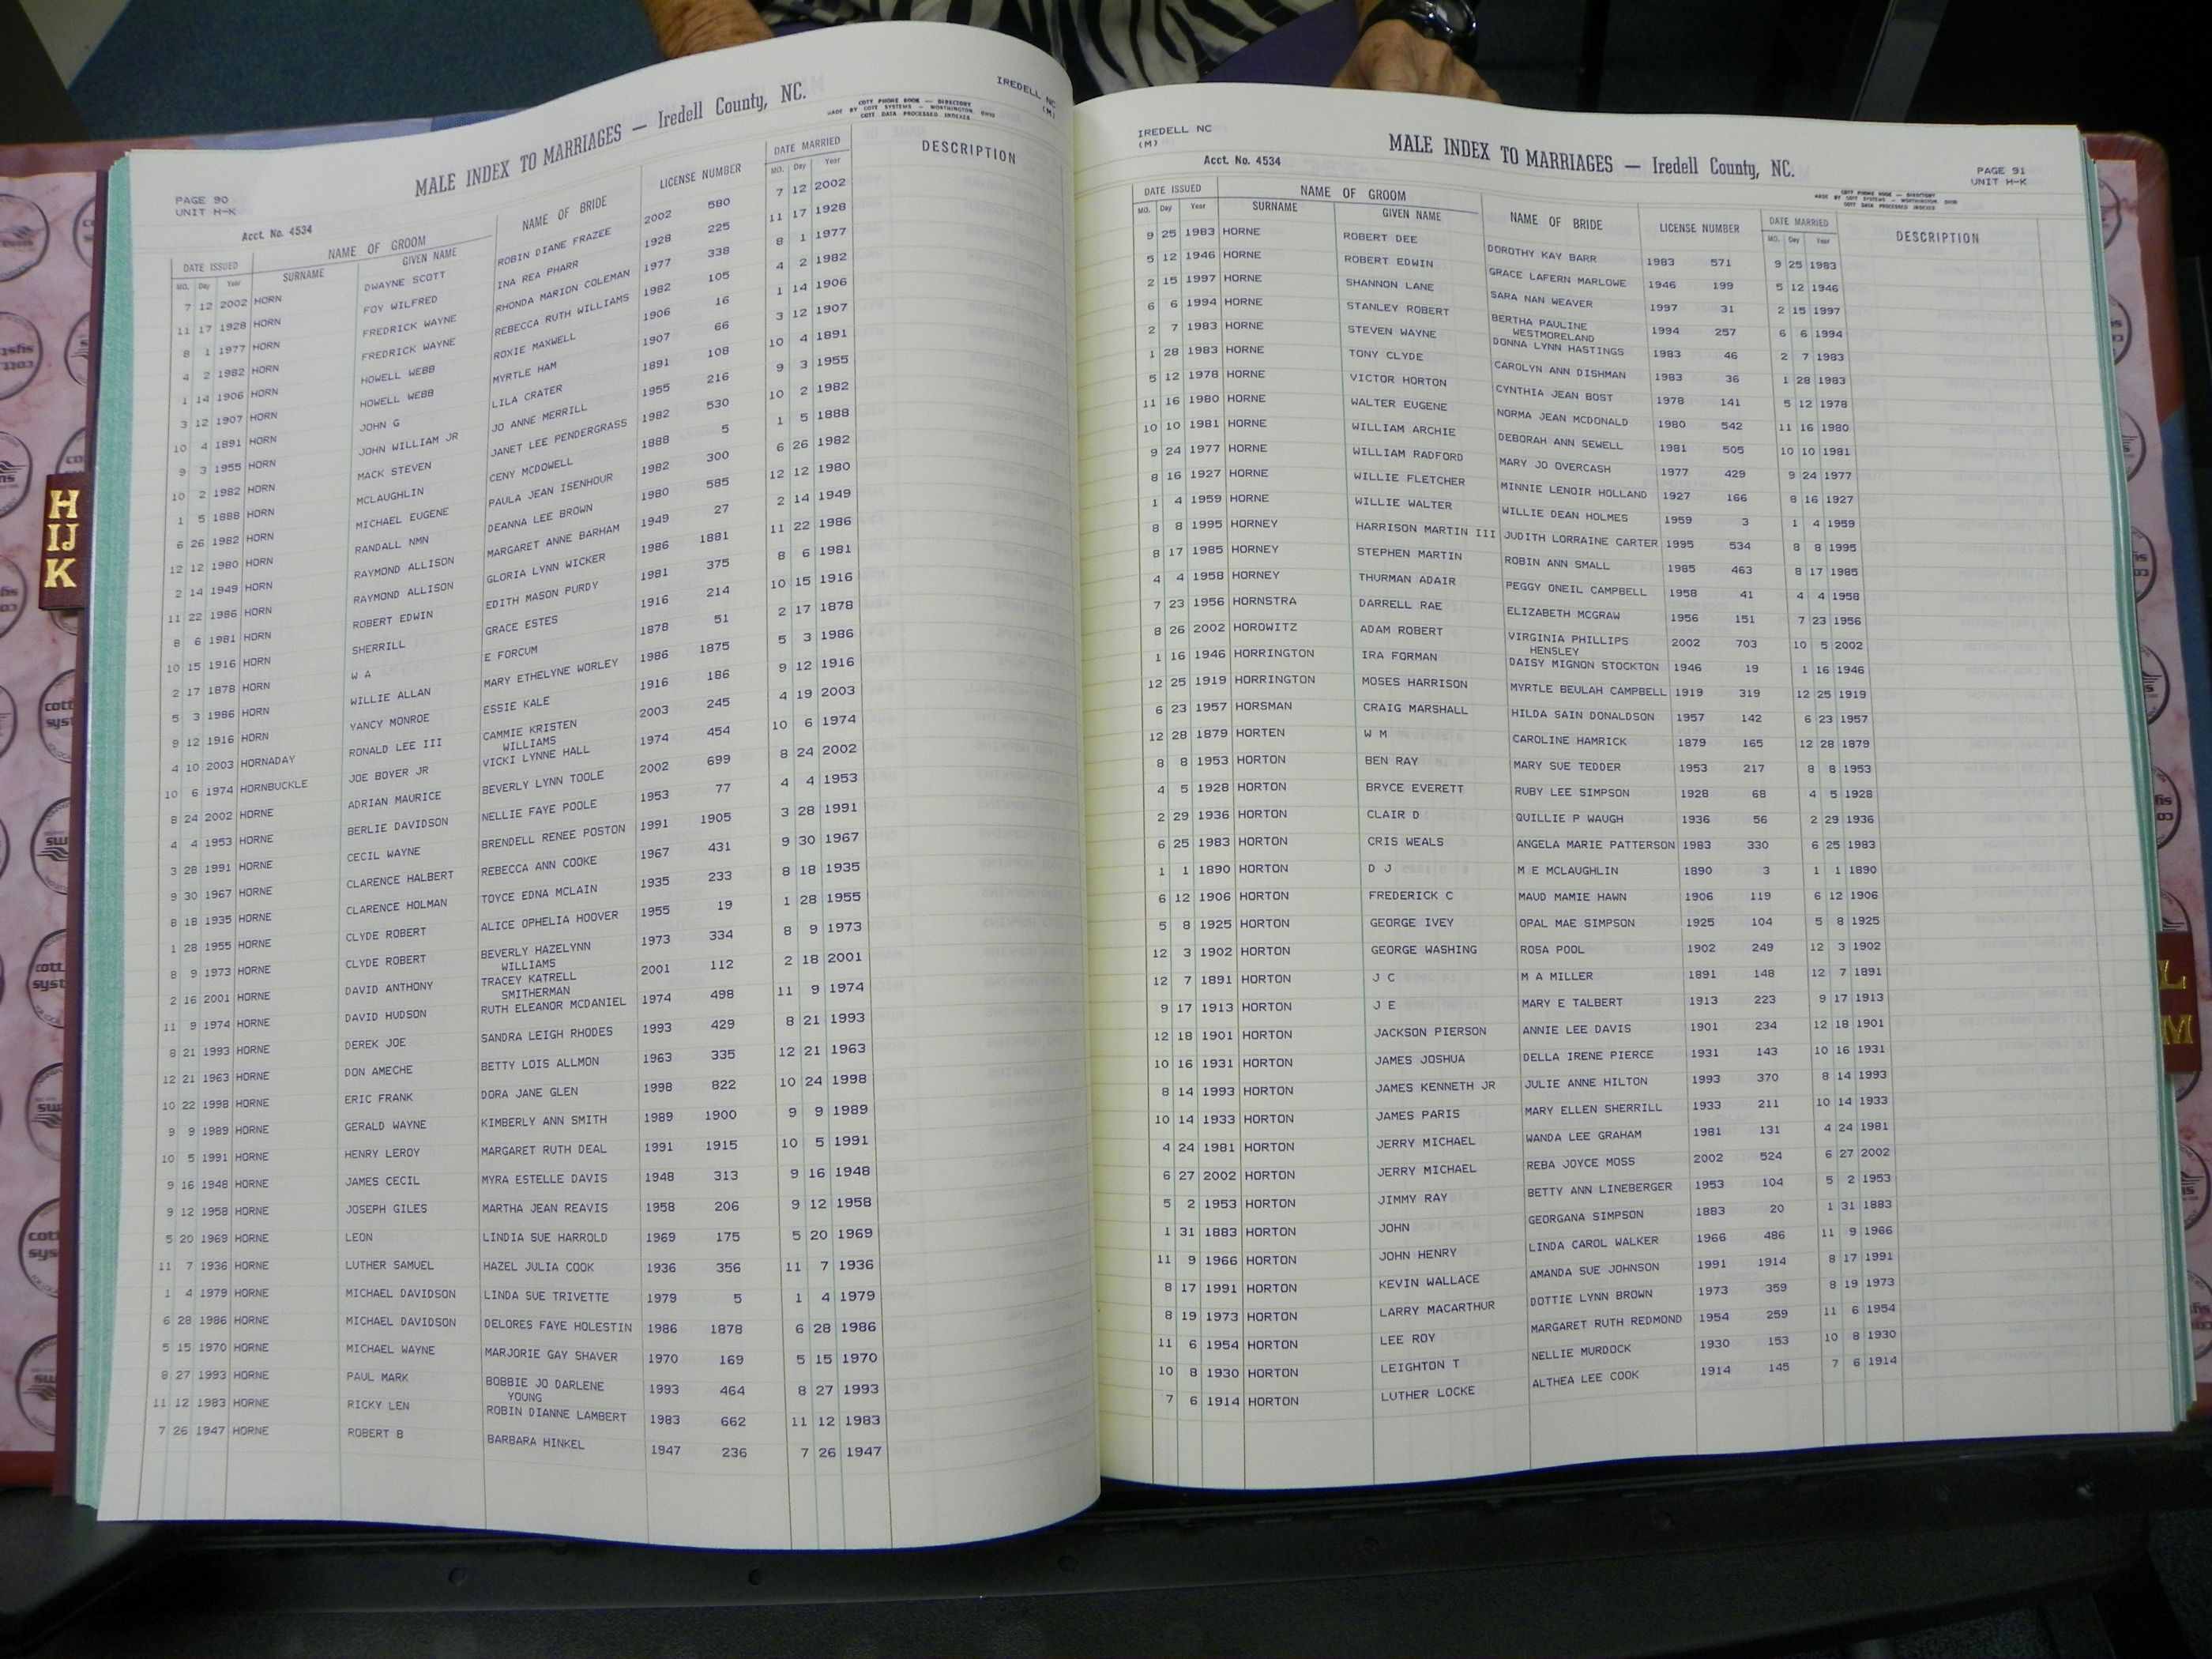 IREDELL NC
(M)
MALE INDEX TO MARRIAGES — Iredell County, NC.
COTT PHONE BOOK — DIRECTORY
MADE BY COTT SYSTEMS — WORTHINGTON, OHIO
COTT DATA PROCESSED INDEXES
PAGE 90
UNIT H-K
Acct. No. 4534
DATE ISSUED NAME OF GROOM NAME OF BRIDE LICENSE NUMBER DATE MARRIED DESCRIPTION
MO. Day Year SURNAME GIVEN NAME MO. Day Year
7 12 2002 HORN DWAYNE SCOTT ROBIN DIANE FRAZEE 2002 580 7 12 2002
11 17 1928 HORN FOY WILFRED INA REA PHARR 1928 225 11 17 1928
8 1 1977 HORN FREDRICK WAYNE RHONDA MARION COLEMAN 1977 338 8 1 1977
4 2 1982 HORN FREDRICK WAYNE REBECCA RUTH WILLIAMS 1982 105 4 2 1982
1 14 1906 HORN HOWELL WEBB ROXIE MAXWELL 1906 16 1 14 1906
3 12 1907 HORN HOWELL WEBB MYRTLE HAM 1907 66 3 12 1907
10 4 1891 HORN JOHN G LILA CRATER 1891 108 10 4 1891
9 3 1955 HORN JOHN WILLIAM JR JO ANNE MERRILL 1955 216 9 3 1955
10 2 1982 HORN MACK STEVEN JANET LEE PENDERGRASS 1982 530 10 2 1982
1 5 1888 HORN MCLAUGHLIN CENY MCDOWELL 1888 5 1 5 1888
6 26 1982 HORN MICHAEL EUGENE PAULA JEAN ISENHOUR 1982 300 6 26 1982
12 12 1980 HORN RANDALL NMN DEANNA LEE BROWN 1980 585 12 12 1980
2 14 1949 HORN RAYMOND ALLISON MARGARET ANNE BARHAM 1949 27 2 14 1949
11 22 1986 HORN RAYMOND ALLISON GLORIA LYNN WICKER 1986 1881 11 22 1986
8 6 1981 HORN ROBERT EDWIN EDITH MASON PURDY 1981 375 8 6 1981
10 15 1916 HORN SHERRILL GRACE ESTES 1916 214 10 15 1916
2 17 1878 HORN W A E FORCUM 1878 51 2 17 1878
5 3 1986 HORN WILLIE ALLAN MARY ETHELYNE WORLEY 1986 1875 5 3 1986
9 12 1916 HORN YANCY MONROE ESSIE KALE 1916 186 9 12 1916
4 10 2003 HORNADAY RONALD LEE III CAMMIE KRISTEN 2003 245 4 19 2003
WILLIAMS
10 6 1974 HORNBUCKLE JOE BOYER JR VICKI LYNNE HALL 1974 454 10 6 1974
8 24 2002 HORNE ADRIAN MAURICE BEVERLY LYNN TOOLE 2002 699 8 24 2002
4 4 1953 HORNE BERLIE DAVIDSON NELLIE FAYE POOLE 1953 77 4 4 1953
3 28 1991 HORNE CECIL WAYNE BRENDELL RENEE POSTON 1991 1905 3 28 1991
9 30 1967 HORNE CLARENCE HALBERT REBECCA ANN COOKE 1967 431 9 30 1967
8 18 1935 HORNE CLARENCE HOLMAN TOYCE EDNA MCLAIN 1935 233 8 18 1935
1 28 1955 HORNE CLYDE ROBERT ALICE OPHELIA HOOVER 1955 19 1 28 1955
8 9 1973 HORNE CLYDE ROBERT BEVERLY HAZELYNN 1973 334 8 9 1973
WILLIAMS
2 16 2001 HORNE DAVID ANTHONY TRACEY KATRELL 2001 112 2 18 2001
SMITHERMAN
11 9 1974 HORNE DAVID HUDSON RUTH ELEANOR MCDANIEL 1974 498 11 9 1974
8 21 1993 HORNE DEREK JOE SANDRA LEIGH RHODES 1993 429 8 21 1993
12 21 1963 HORNE DON AMECHE BETTY LOIS ALLMON 1963 335 12 21 1963
10 22 1998 HORNE ERIC FRANK DORA JANE GLEN 1998 822 10 24 1998
9 9 1989 HORNE GERALD WAYNE KIMBERLY ANN SMITH 1989 1900 9 9 1989
10 5 1991 HORNE HENRY LEROY MARGARET RUTH DEAL 1991 1915 10 5 1991
9 16 1948 HORNE JAMES CECIL MYRA ESTELLE DAVIS 1948 313 9 16 1948
9 12 1958 HORNE JOSEPH GILES MARTHA JEAN REAVIS 1958 206 9 12 1958
5 20 1969 HORNE LEON LINDIA SUE HARROLD 1969 175 5 20 1969
11 7 1936 HORNE LUTHER SAMUEL HAZEL JULIA COOK 1936 356 11 7 1936
1 4 1979 HORNE MICHAEL DAVIDSON LINDA SUE TRIVETTE 1979 5 1 4 1979
6 28 1986 HORNE MICHAEL DAVIDSON DELORES FAYE HOLESTIN 1986 1878 6 28 1986
5 15 1970 HORNE MICHAEL WAYNE MARJORIE GAY SHAVER 1970 169 5 15 1970
8 27 1993 HORNE PAUL MARK BOBBIE JO DARLENE 1993 464 8 27 1993
YOUNG
11 12 1983 HORNE RICKY LEN ROBIN DIANNE LAMBERT 1983 662 11 12 1983
7 26 1947 HORNE ROBERT B BARBARA HINKEL 1947 236 7 26 1947
IREDELL NC
(M)
MALE INDEX TO MARRIAGES — Iredell County, NC.
Acct. No. 4534
PAGE 91
UNIT H-K
COTT PHONE BOOK — DIRECTORY
MADE BY COTT SYSTEMS — WORTHINGTON, OHIO
COTT DATA PROCESSED INDEXES
DATE ISSUED NAME OF GROOM NAME OF BRIDE LICENSE NUMBER DATE MARRIED DESCRIPTION
MO. Day Year SURNAME GIVEN NAME MO. Day Year
9 25 1983 HORNE ROBERT DEE DOROTHY KAY BARR 1983 571 9 25 1983
5 12 1946 HORNE ROBERT EDWIN GRACE LAFERN MARLOWE 1946 199 5 12 1946
2 15 1997 HORNE SHANNON LANE SARA NAN WEAVER 1997 31 2 15 1997
6 6 1994 HORNE STANLEY ROBERT BERTHA PAULINE 1994 257 6 6 1994
WESTMORELAND
2 7 1983 HORNE STEVEN WAYNE DONNA LYNN HASTINGS 1983 46 2 7 1983
1 28 1983 HORNE TONY CLYDE CAROLYN ANN DISHMAN 1983 36 1 28 1983
5 12 1978 HORNE VICTOR HORTON CYNTHIA JEAN BOST 1978 141 5 12 1978
11 16 1980 HORNE WALTER EUGENE NORMA JEAN MCDONALD 1980 542 11 16 1980
10 10 1981 HORNE WILLIAM ARCHIE DEBORAH ANN SEWELL 1981 505 10 10 1981
9 24 1977 HORNE WILLIAM RADFORD MARY JO OVERCASH 1977 429 9 24 1977
8 16 1927 HORNE WILLIE FLETCHER MINNIE LENOIR HOLLAND 1927 166 8 16 1927
1 4 1959 HORNE WILLIE WALTER WILLIE DEAN HOLMES 1959 3 1 4 1959
8 8 1995 HORNEY HARRISON MARTIN III JUDITH LORRAINE CARTER 1995 534 8 8 1995
8 17 1985 HORNEY STEPHEN MARTIN ROBIN ANN SMALL 1985 463 8 17 1985
4 4 1958 HORNEY THURMAN ADAIR PEGGY ONEIL CAMPBELL 1958 41 4 4 1958
7 23 1956 HORNSTRA DARRELL RAE ELIZABETH MCGRAW 1956 151 7 23 1956
8 26 2002 HOROWITZ ADAM ROBERT VIRGINIA PHILLIPS 2002 703 10 5 2002
HENSLEY
1 16 1946 HORRINGTON IRA FORMAN DAISY MIGNON STOCKTON 1946 19 1 16 1946
12 25 1919 HORRINGTON MOSES HARRISON MYRTLE BEULAH CAMPBELL 1919 319 12 25 1919
6 23 1957 HORSMAN CRAIG MARSHALL HILDA SAIN DONALDSON 1957 142 6 23 1957
12 28 1879 HORTEN W M CAROLINE HAMRICK 1879 165 12 28 1879
8 8 1953 HORTON BEN RAY MARY SUE TEDDER 1953 217 8 8 1953
4 5 1928 HORTON BRYCE EVERETT RUBY LEE SIMPSON 1928 68 4 5 1928
2 29 1936 HORTON CLAIR D QUILLIE P WAUGH 1936 56 2 29 1936
6 25 1983 HORTON CRIS WEALS ANGELA MARIE PATTERSON 1983 330 6 25 1983
1 1 1890 HORTON D J M E MCLAUGHLIN 1890 3 1 1 1890
6 12 1906 HORTON FREDERICK C MAUD MAMIE HAWN 1906 119 6 12 1906
5 8 1925 HORTON GEORGE IVEY OPAL MAE SIMPSON 1925 104 5 8 1925
12 3 1902 HORTON GEORGE WASHING ROSA POOL 1902 249 12 3 1902
12 7 1891 HORTON J C M A MILLER 1891 148 12 7 1891
9 17 1913 HORTON J E MARY E TALBERT 1913 223 9 17 1913
12 18 1901 HORTON JACKSON PIERSON ANNIE LEE DAVIS 1901 234 12 18 1901
10 16 1931 HORTON JAMES JOSHUA DELLA IRENE PIERCE 1931 143 10 16 1931
8 14 1993 HORTON JAMES KENNETH JR JULIE ANNE HILTON 1993 370 8 14 1993
10 14 1933 HORTON JAMES PARIS MARY ELLEN SHERRILL 1933 211 10 14 1933
4 24 1981 HORTON JERRY MICHAEL WANDA LEE GRAHAM 1981 131 4 24 1981
6 27 2002 HORTON JERRY MICHAEL REBA JOYCE MOSS 2002 524 6 27 2002
5 2 1953 HORTON JIMMY RAY BETTY ANN LINEBERGER 1953 104 5 2 1953
1 31 1883 HORTON JOHN GEORGANA SIMPSON 1883 20 1 31 1883
11 9 1966 HORTON JOHN HENRY LINDA CAROL WALKER 1966 486 11 9 1966
8 17 1991 HORTON KEVIN WALLACE AMANDA SUE JOHNSON 1991 1914 8 17 1991
8 19 1973 HORTON LARRY MACARTHUR DOTTIE LYNN BROWN 1973 359 8 19 1973
11 6 1954 HORTON LEE ROY MARGARET RUTH REDMOND 1954 259 11 6 1954
10 8 1930 HORTON LEIGHTON T NELLIE MURDOCK 1930 153 10 8 1930
7 6 1914 HORTON LUTHER LOCKE ALTHEA LEE COOK 1914 145 7 6 1914
H
IJ
K
L
M